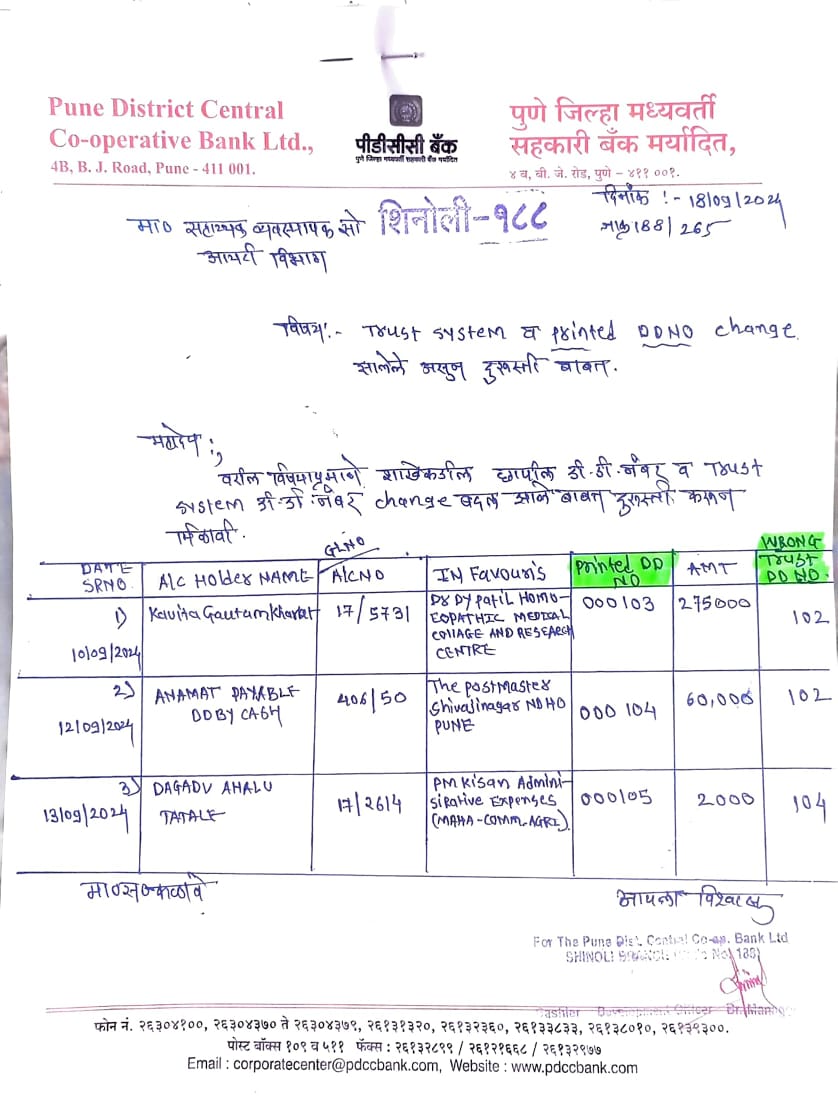 Pune District Central
Co-operative Bank Ltd.,
4B, B. J. Road, Pune - 411 001.
पीडीसीसी बँक
पुणे जिल्हा मध्यवर्ती सहकारी बँक मर्यादित
पुणे जिल्हा मध्यवर्ती
सहकारी बँक मर्यादित,
४ ब, बी. जे. रोड, पुणे – ४११ ००१.
दिनांक :- 18/09/2024
जाक्र 188/265
मा० सहाय्यक व्यवस्थापक सो शिनोली-१८८
आयटी विभाग
विषय:- Trust system व printed DDNO change
झालेले असुन दुरुस्ती बाबत.
महोदय,
वरील विषयाप्रमाणे शाखेकडील छापील डी.डी.नंबर व Trust
system डी.डी.नंबर change बदल झाले बाबत दुरुस्ती करून
मिळावी.
DATE SRNO. A/C Holder NAME GLNO/A/CNO IN Favouris Printed DD NO AMT WRONG TRUST DD NO.
1) 10/09/2024 Kavita Gautam Kharat 17/5731 DR DY Patil HOMO-EOPATHIC MEDICAL COLLAGE AND RESEARCH CENTRE 000103 275000 102
2) 12/09/2024 ANAMAT PAYABLE DD BY CASH 406/50 The postmaster Shivajinagar NDHO PUNE 000104 60,000 102
3) 13/09/2024 DAGADU AHALU TATALE 17/2614 PM Kisan Admini-sirative Expenses (MAHA-COMM-AGRI). 000105 2000 104
मा०स०कळावे
आपला विश्वासू
For The Pune Dist. Central Co-op. Bank Ltd
SHINOLI BRANCH 188)
Cashier Development Officer
फोन नं. २६३०४१००, २६३०४३७० ते २६३०४३७९, २६१३१३२०, २६१३२३६०, २६१३३८३३, २६१३८०१०, २६१३९३००.
पोस्ट बॉक्स १०९ व ५११ फॅक्स : २६१३२८९९ / २६१२१६६८ / २६१३२९७७
Email : corporatecenter@pdccbank.com, Website : www.pdccbank.com